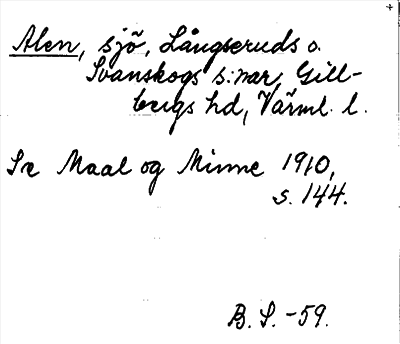 Alen, sjö, Långseruds o.
Svanskogs s:nar, Gill-
bergs hd, Värml. l.
Se Maal og Minne 1910,
s. 144.
B. S. -59.